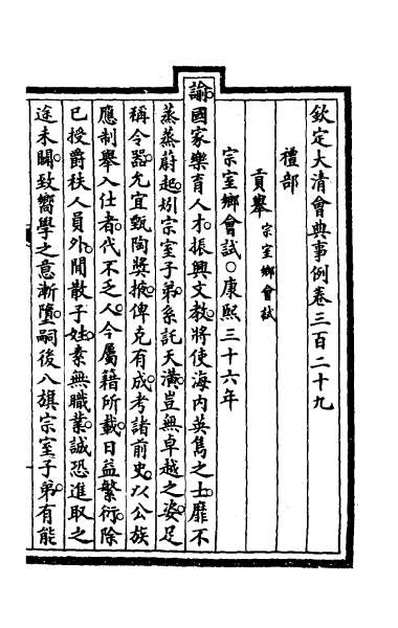 欽定大清會典事例卷三百二十九
禮部
貢舉 宗室鄉會試
宗室鄉會試○康熙三十六年
諭國家樂育人才。振興文教。將使海內英雋之士。靡不
蒸蒸蔚起。矧宗室子弟。系託天潢。豈無卓越之姿。足
稱令器。允宜甄陶獎掖。俾克有成。考諸前史。以公族
應制舉入仕者。代不乏人。今屬籍所載。日益繁衍。除
已授爵秩人員外。閒散子姓。素無職業。誠恐進取之
途未闢。致嚮學之意漸墮。嗣後八旗宗室子弟。有能